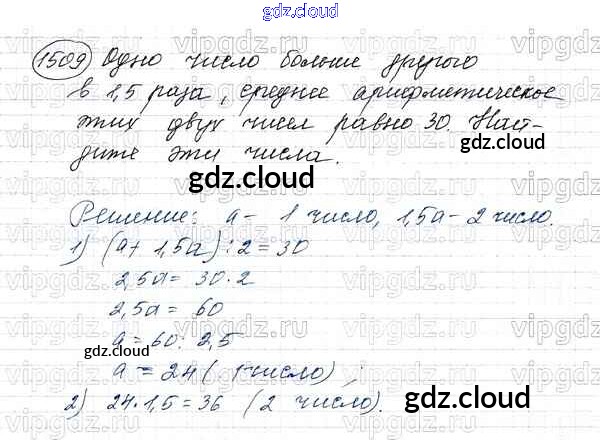 gdz.cloud
1509 Одно число больше другого
в 1,5 раза, среднее арифметическое
этих двух чисел равно 30. Най-
дите эти числа.
gdz.cloud
gdz.cloud
Решение: a - 1 число, 1,5a - 2 число.
1) (a + 1,5a) : 2 = 30
2,5a = 30 · 2
2,5a = 60
a = 60 : 2,5
gdz.cloud
a = 24 (1 число) ;
2) 24 · 1,5 = 36 (2 число).
gdz.cloud